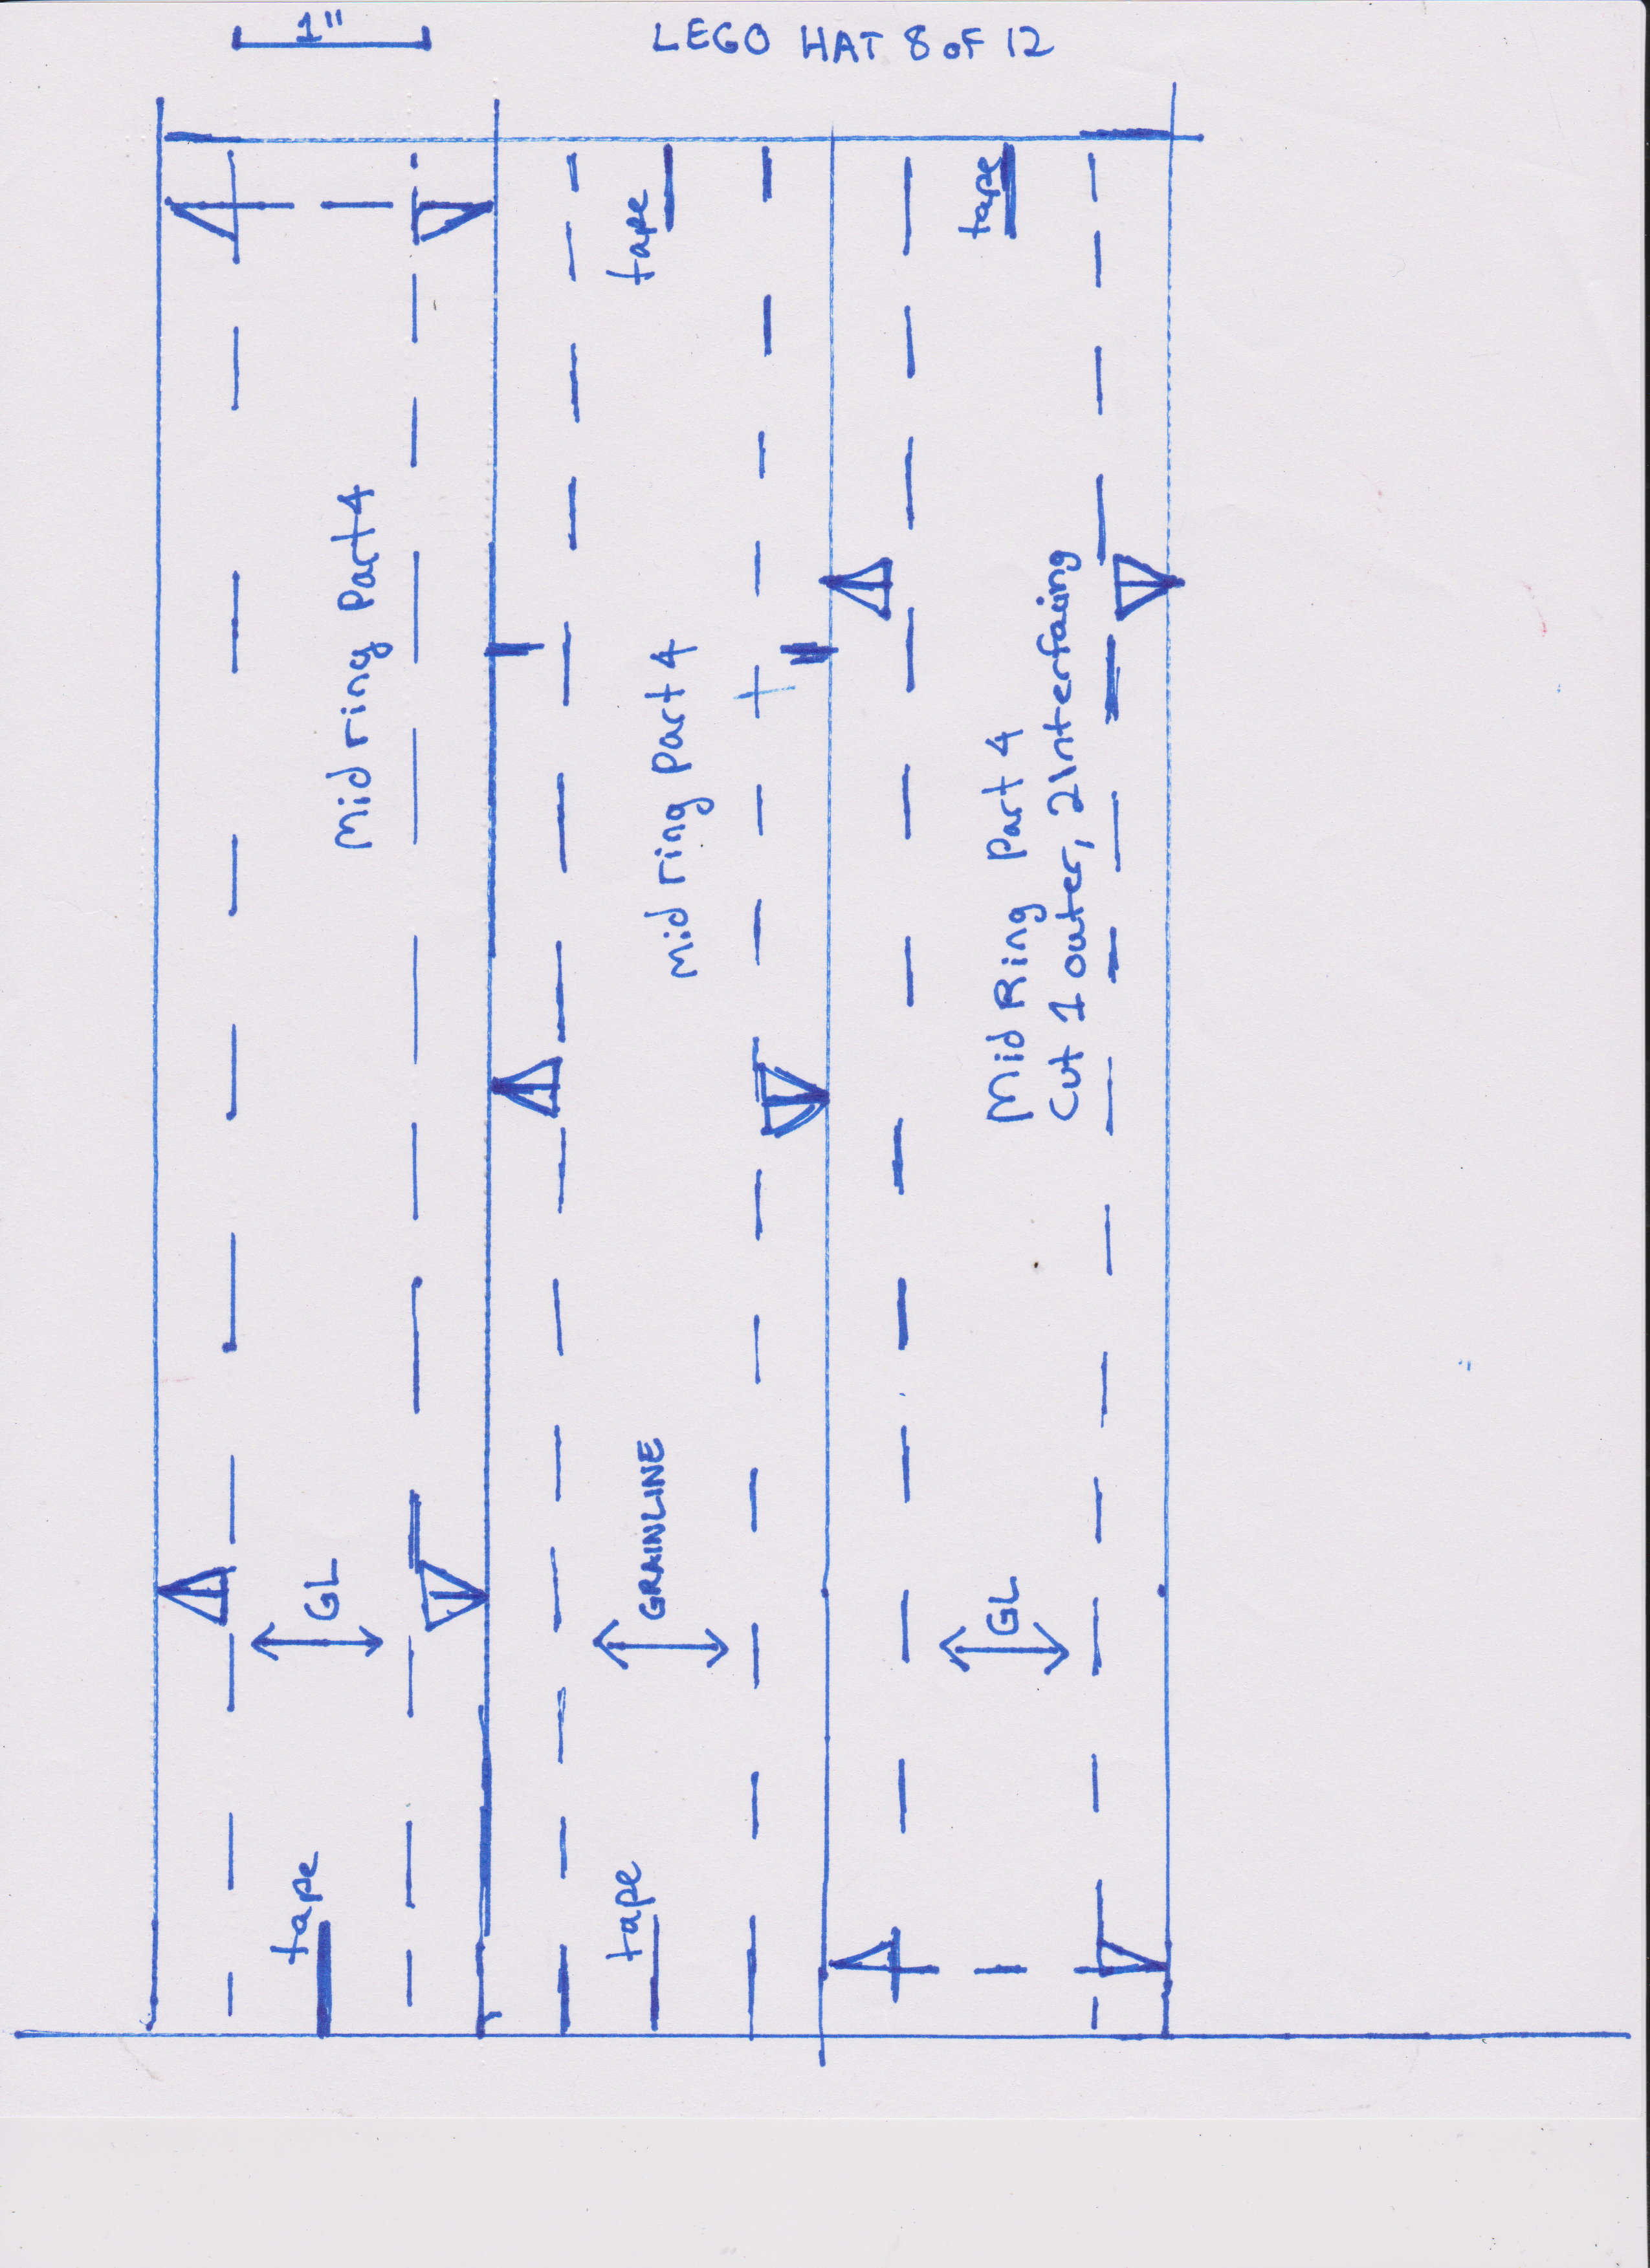 1"
LEGO HAT 8 OF 12
tape
tape
Mid ring Part 4
mid ring part 4
Mid Ring Part 4
Cut 1 outer, 2 Interfacing
GL
GRAINLINE
GL
tape
tape